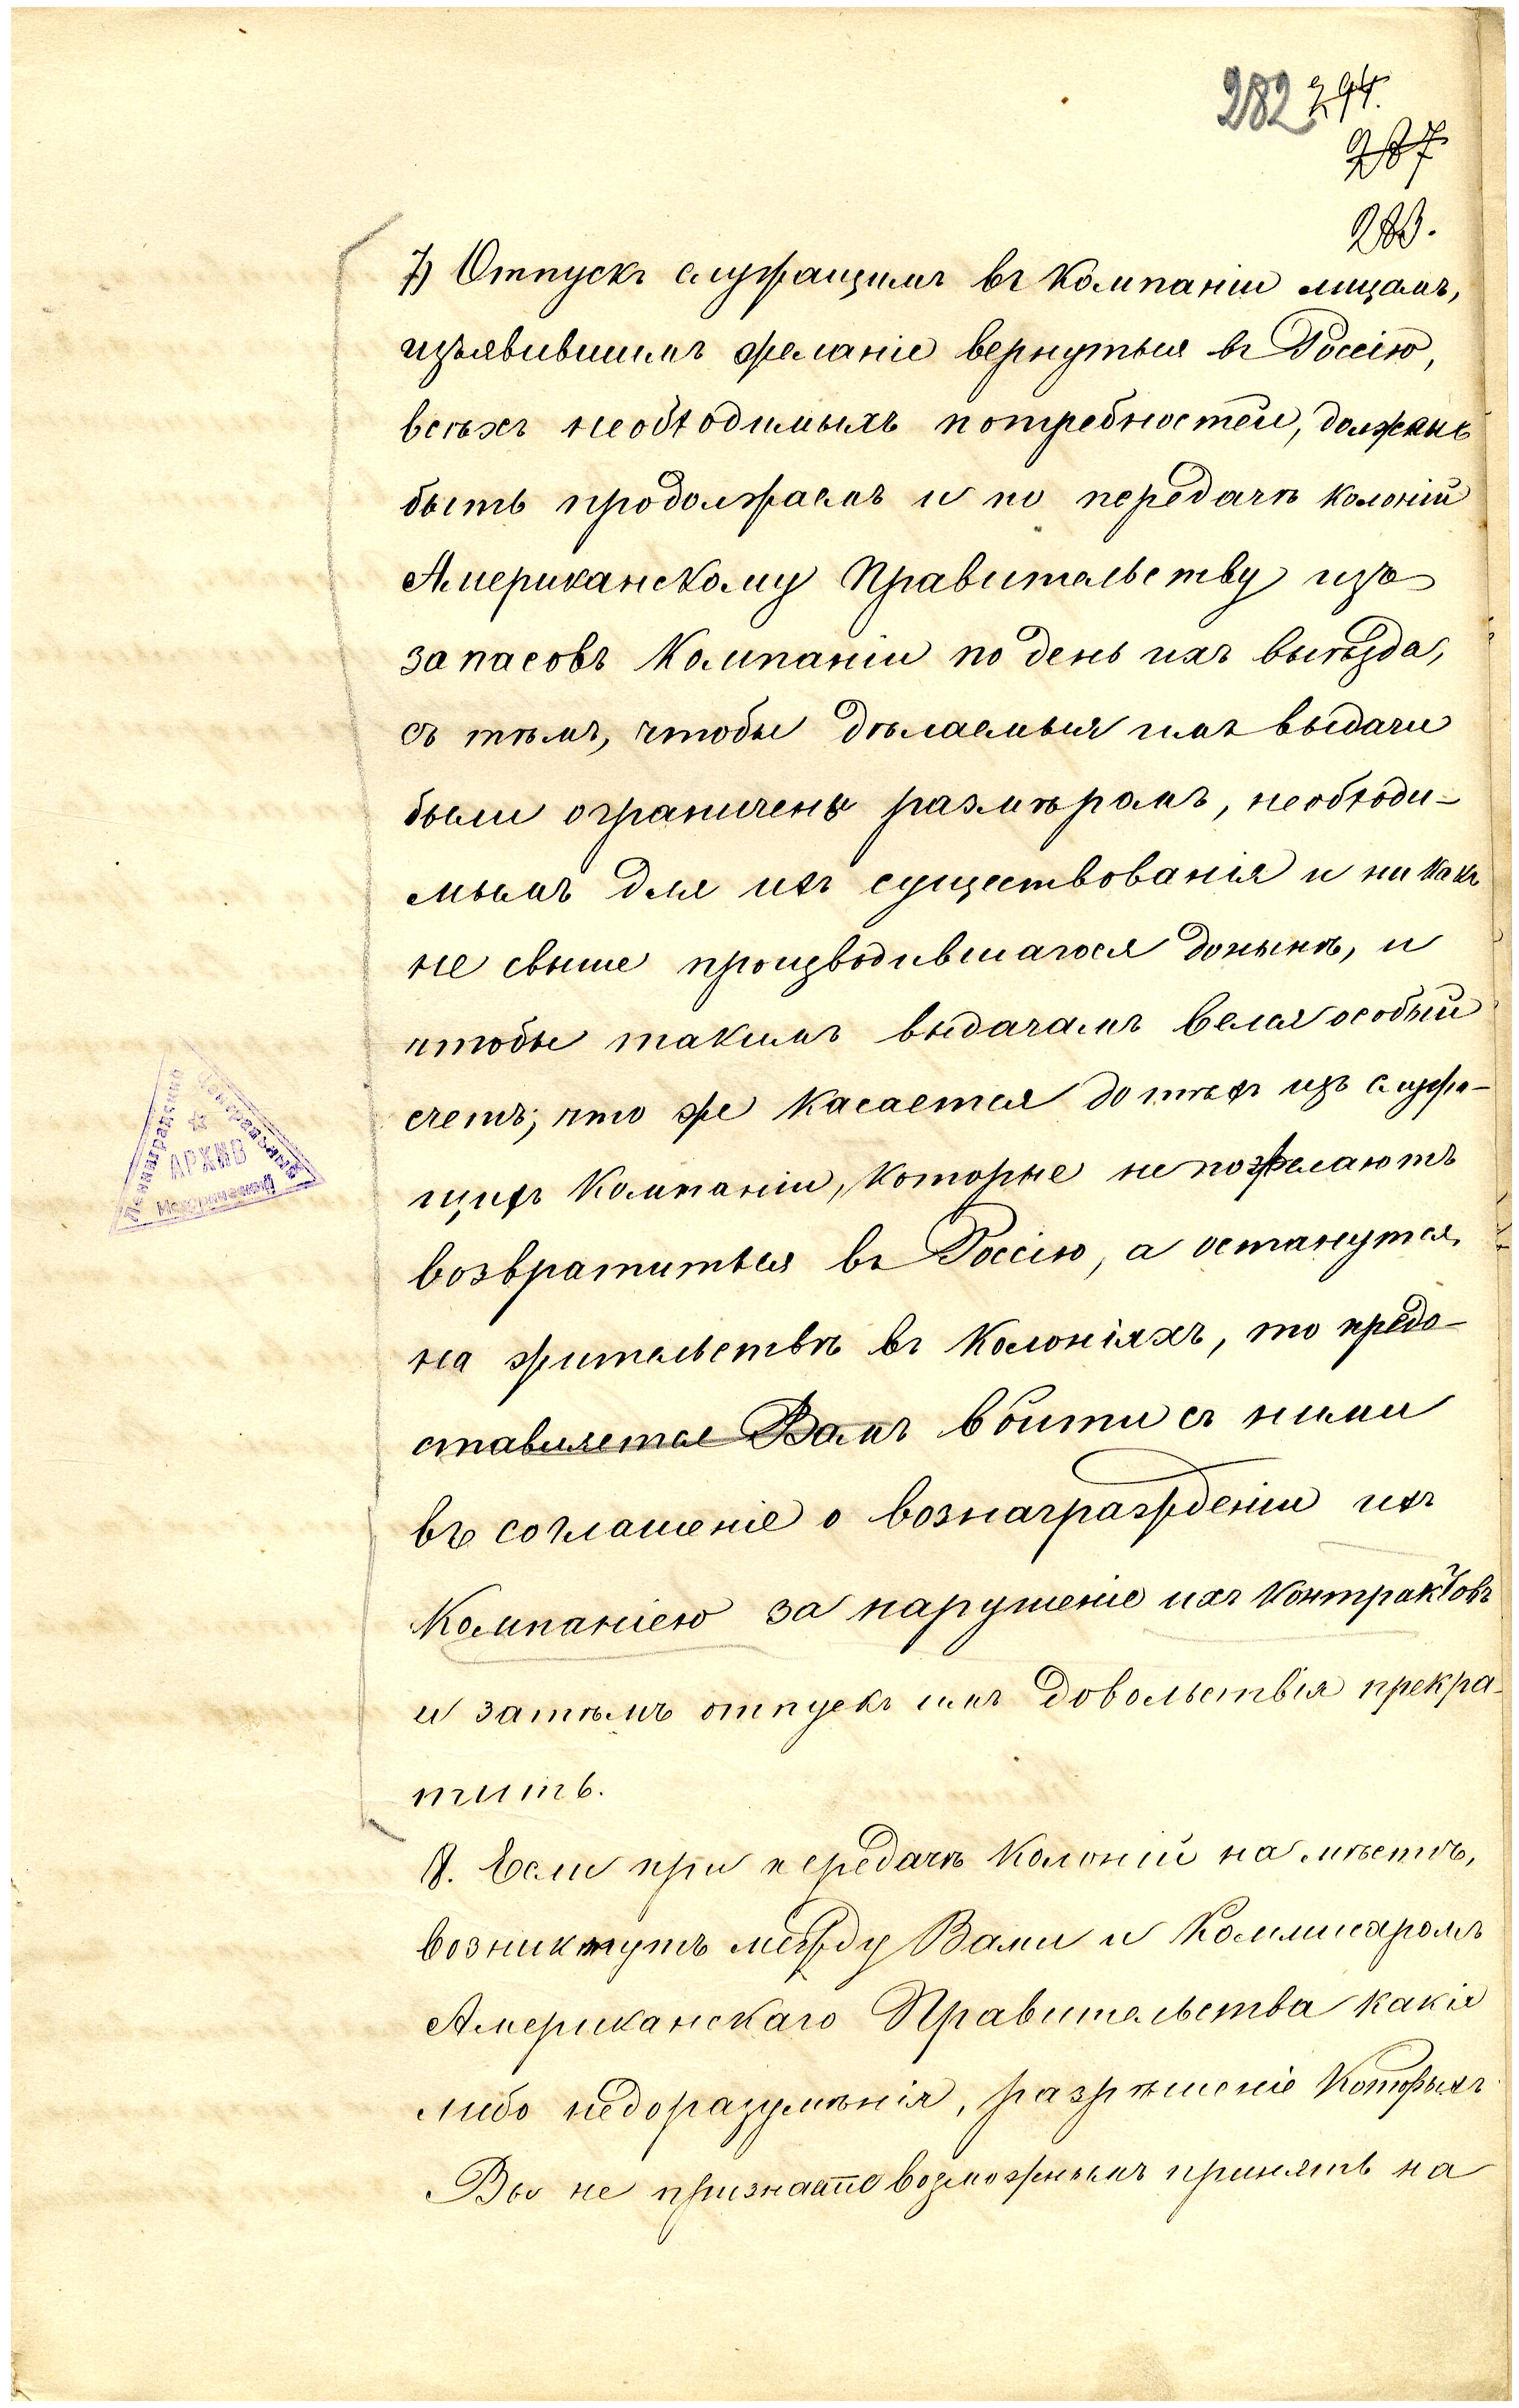 282 294.
287
283.
7) Отпускъ служащимъ въ Компаніи лицамъ,
изъявившимъ желаніе вернуться въ Россію,
всѣхъ необходимыхъ потребностей, долженъ
быть продолжаемъ и по передачѣ колоній
Американскому Правительству изъ
запасовъ Компаніи по день ихъ выѣзда,
съ тѣмъ, чтобы дѣлаемыя имъ выдачи
были ограничены размѣромъ, необходи-
мымъ для ихъ существованія и никакъ
не свыше производившагося донынѣ, и
чтобы такимъ выдачамъ велся особый
счетъ; что же касается до тѣхъ изъ служа-
щихъ Компаніи, которые не пожелаютъ
возвратиться въ Россію, а останутся
на жительствѣ въ Колоніяхъ, то предо-
ставляется Вамъ войти съ ними
въ соглашеніе о вознагражденіи ихъ
Компаніею за нарушеніе ихъ контрактовъ
и затѣмъ отпускъ имъ довольствія прекра-
тить.
8. Если при передачѣ Колоній на мѣстѣ,
возникнутъ между Вами и Коммисаромъ
Американскаго Правительства какія
либо недоразумѣнія, разрѣшеніе которыхъ
Вы не признаете возможнымъ принять на
Ленинградский
Центральный
АРХИВ
Исторический